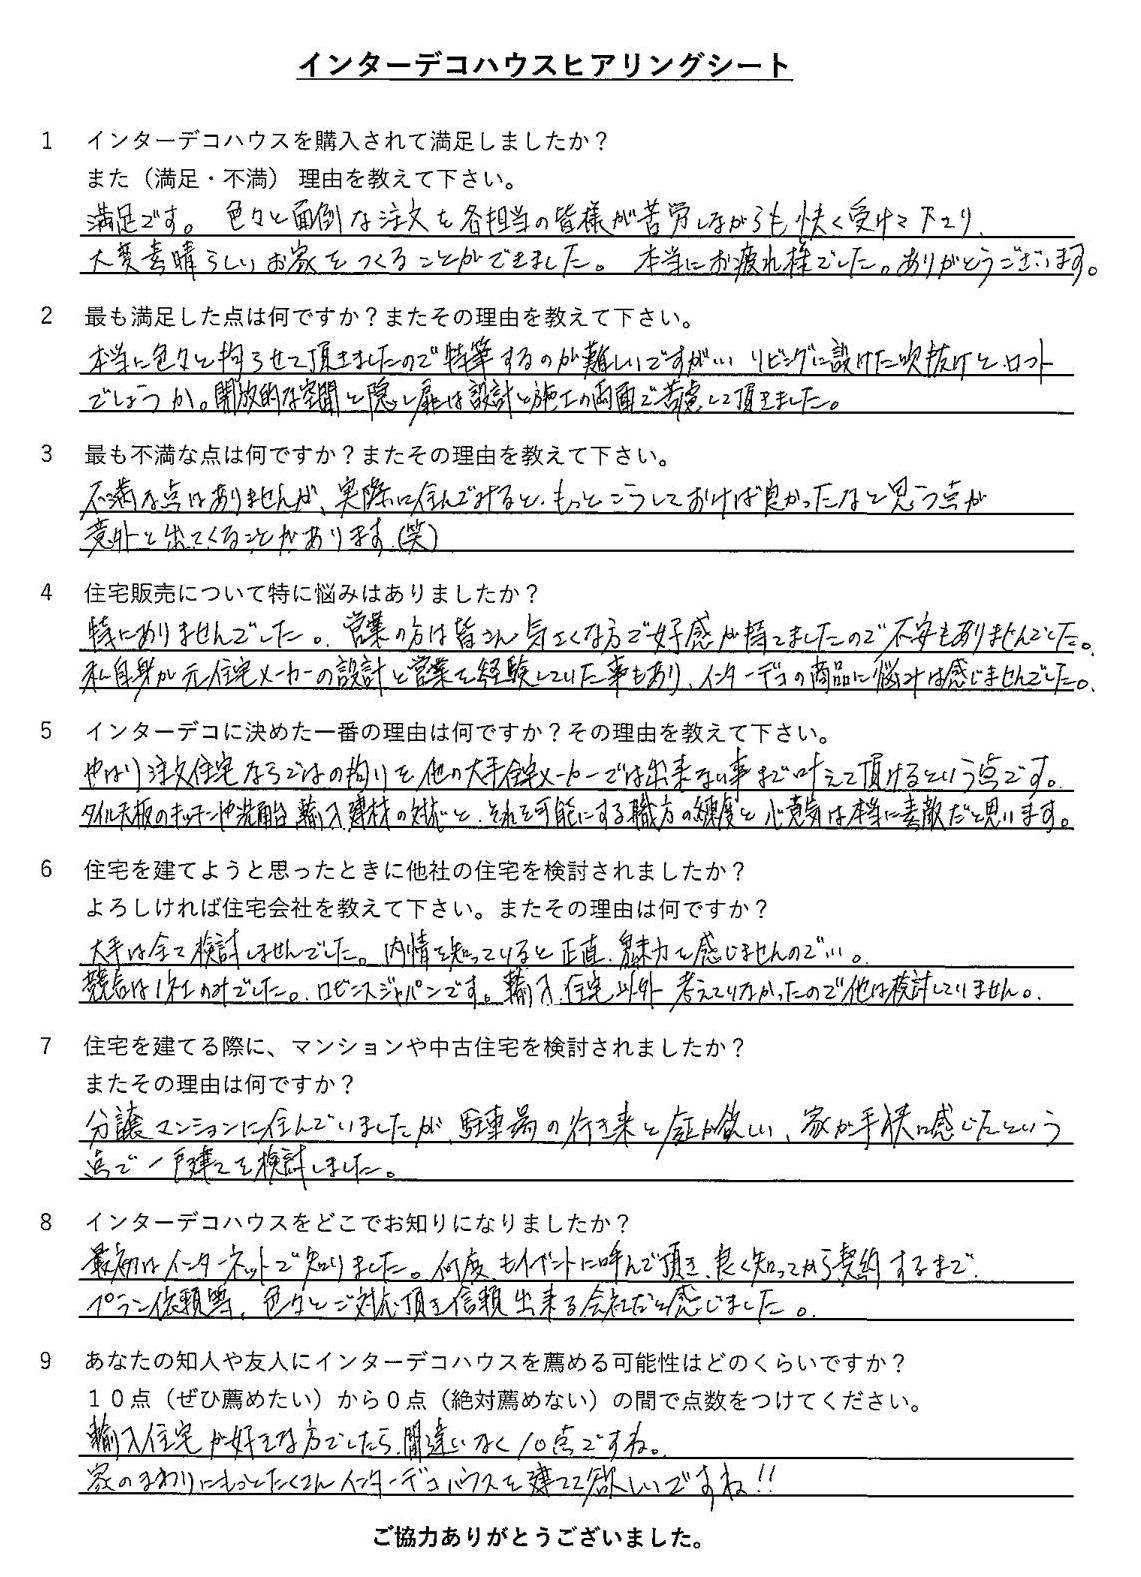 インターデコハウスヒアリングシート
1 インターデコハウスを購入されて満足しましたか？
また（満足・不満） 理由を教えて下さい。
満足です。 色々と面倒な注文を各担当の皆様が苦労しながらも快く受けて下さり、
大変素晴らしいお家をつくることができました。 本当にお疲れ様でした。ありがとうございます。
2 最も満足した点は何ですか？またその理由を教えて下さい。
本当に色々と拘らせて頂きましたので特筆するのが難しいですが… リビングに設けた吹抜けとロフト
でしょうか。開放的な空間と隠し扉は設計と施工の両面で苦慮して頂きました。
3 最も不満な点は何ですか？またその理由を教えて下さい。
不満な点はありませんが、実際に住んでみると、もっとこうしておけば良かったなと思う点が
意外と出てくることがあります（笑）
4 住宅販売について特に悩みはありましたか？
特にありませんでした。 営業の方は皆さん気さくな方で好感が持てましたので不安もありませんでした。
私自身が元住宅メーカーの設計と営業を経験していた事もあり、インターデコの商品に悩みは感じませんでした。
5 インターデコに決めた一番の理由は何ですか？その理由を教えて下さい。
やはり注文住宅ならではの拘りを他の大手住宅メーカーでは出来ない事まで叶えて頂けるという点です。
タイル天板のキッチンや洗面台、輸入建材の対応と、それを可能にする職方の練度と心意気は本当に素敵だと思います。
6 住宅を建てようと思ったときに他社の住宅を検討されましたか？
よろしければ住宅会社を教えて下さい。またその理由は何ですか？
大手は全て検討しませんでした。内情を知っていると正直、魅力を感じませんので…。
競合は1社のみでした。ロビンスジャパンです。輸入住宅以外考えていなかったので他は検討していません。
7 住宅を建てる際に、マンションや中古住宅を検討されましたか？
またその理由は何ですか？
分譲マンションに住んでいましたが、駐車場の行き来と庭が欲しい、家が手狭に感じたという
点で一戸建てを検討しました。
8 インターデコハウスをどこでお知りになりましたか？
最初はインターネットで知りました。何度もイベントに呼んで頂き、良く知ってから契約するまで、
プラン依頼等、色々とご対応頂き信頼出来る会社だと感じました。
9 あなたの知人や友人にインターデコハウスを薦める可能性はどのくらいですか？
１０点（ぜひ薦めたい）から０点（絶対薦めない）の間で点数をつけてください。
輸入住宅が好きな方でしたら、間違いなく10点ですね。
家のまわりにもっとたくさんインターデコハウスを建てて欲しいですね!!
ご協力ありがとうございました。